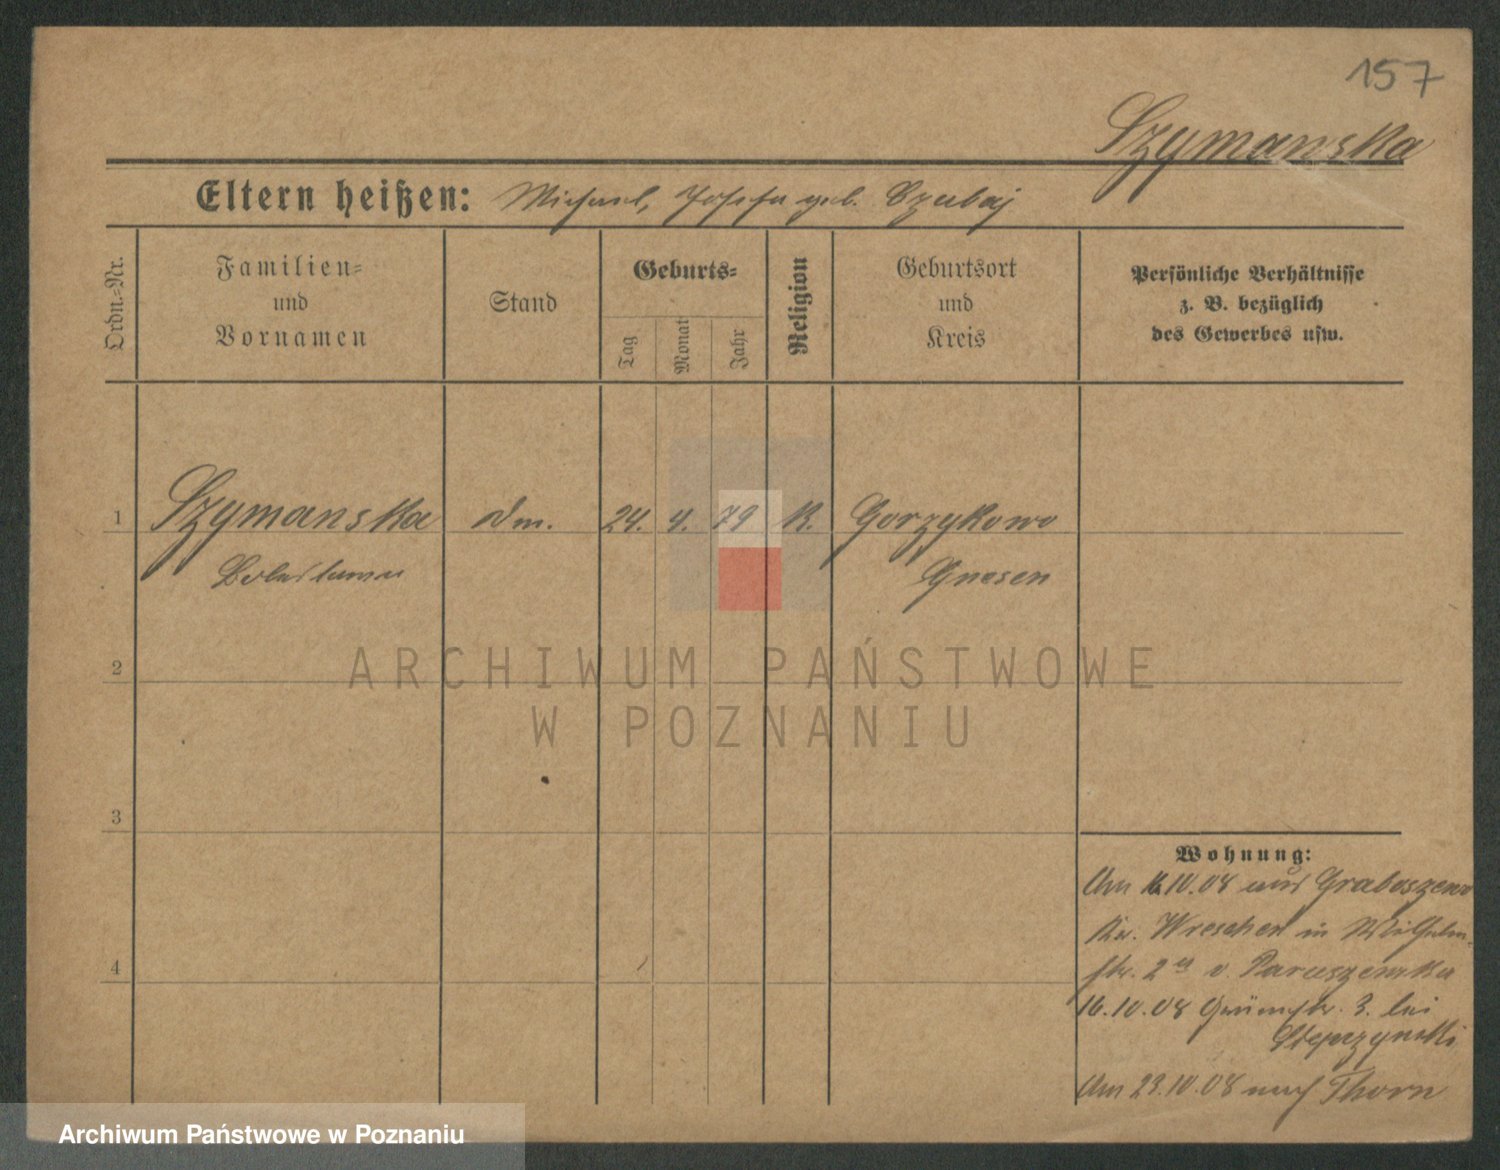 157
Szymanska
Eltern heißen: Michael, Josefa geb. Czubaj
Ordn.-Nr.
Familien-
und
Vornamen
Stand
Geburts-
Tag
Monat
Jahr
Religion
Geburtsort
und
Kreis
Persönliche Verhältnisse
z. B. bezüglich
des Gewerbes usw.
1 Szymanska 24. 4. 79 K. Gorzykowo
Boleslawa Gnesen
ARCHIWUM PAŃSTWOWE
W POZNANIU
2
3
4
Wohnung:
Am 16.10.08 aus Graboszewo
Kr. Wreschen in Wilhelm-
str. 2 v. Paruszewska
16.10.08 Grünstr. 3. bei
Am 23.10.08 nach Thorn
Archiwum Państwowe w Poznaniu